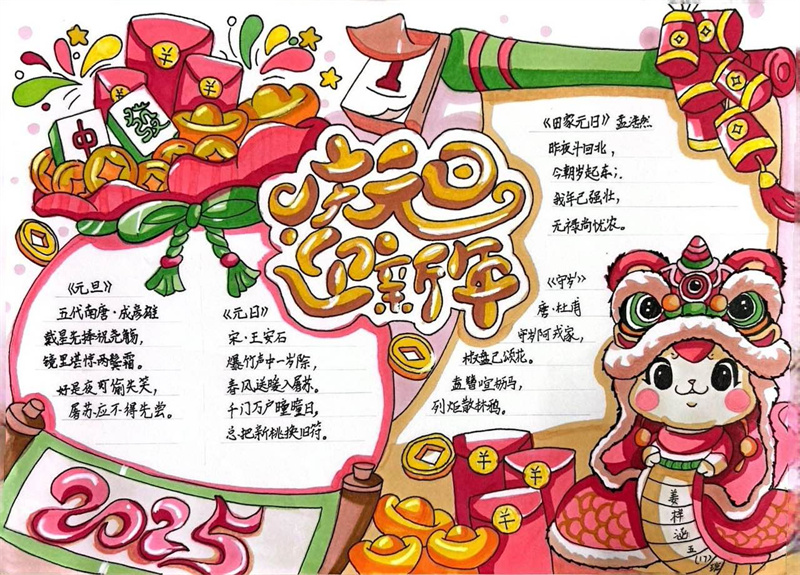 中
發
庆元旦
迎新年
《元旦》
五代南唐·成彦雄
戴星先捧祝尧觞,
镜里堪惊两鬓霜。
好是夜可偷失笑,
屠苏应不得先尝。
《元日》
宋·王安石
爆竹声中一岁除,
春风送暖入屠苏。
千门万户瞳瞳日,
总把新桃换旧符。
《田家元日》孟浩然
昨夜斗回北,
今朝岁起东;
我年已强壮,
无禄尚忧农。
《守岁》
唐·杜甫
守岁阿戎家,
椒盘已颂花。
盍簪喧枥马,
列炬散林鸦。
2025
1
¥
¥
¥
¥
¥
¥
姜梓涵
五(17)班